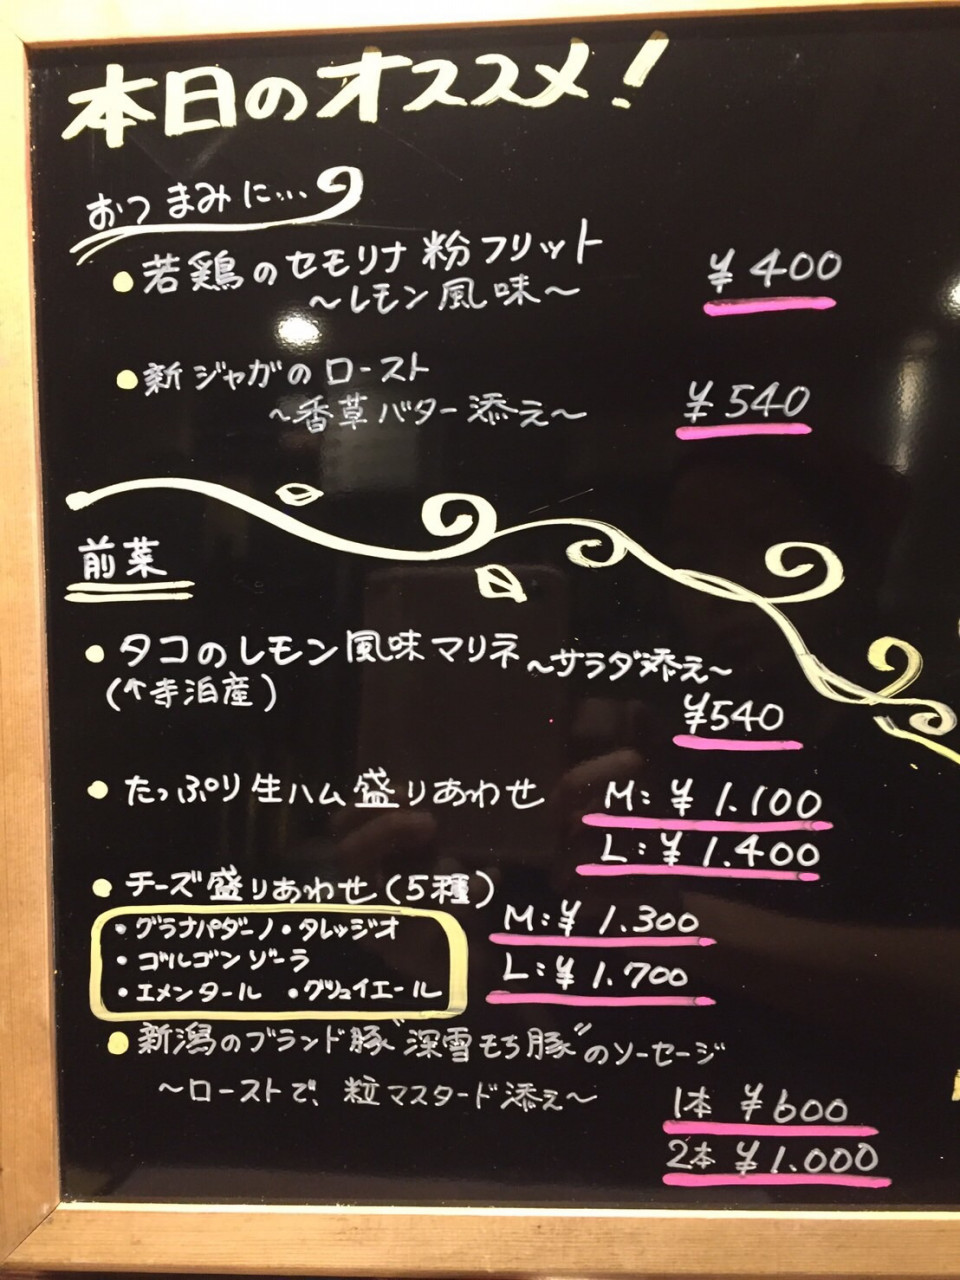 本日のオススメ!
おつまみに…
• 若鶏のセモリナ粉フリット
〜レモン風味〜 ¥400
• 新ジャガのロースト
〜香草バター添え〜 ¥540
前菜
• タコのレモン風味マリネ 〜サラダ添え〜
(↑寺泊産)
¥540
• たっぷり生ハム盛りあわせ M:¥1.100
L:¥1.400
• チーズ盛りあわせ(5種)
M:¥1.300
L:¥1.700
・グラナパダーノ・タレッジオ
・ゴルゴンゾーラ
・エメンタール ・グリュイエール
• 新潟のブランド豚"深雪もち豚"のソーセージ
〜ローストで、粒マスタード添え〜
1本 ¥600
2本 ¥1.000